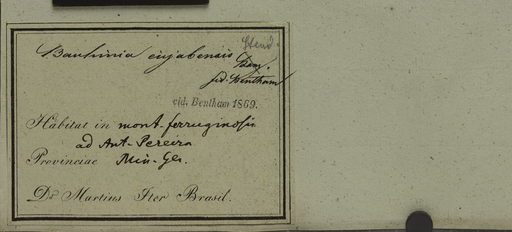 Steud.
Bauhinia cujabensis
Bong.
fid. Bentham
vid. Bentham 1869.
Habitat in mont. ferruginosis
ad Ant. Pereira
Provinciae Min. Ger.
Dr. Martius Iter Brasil.